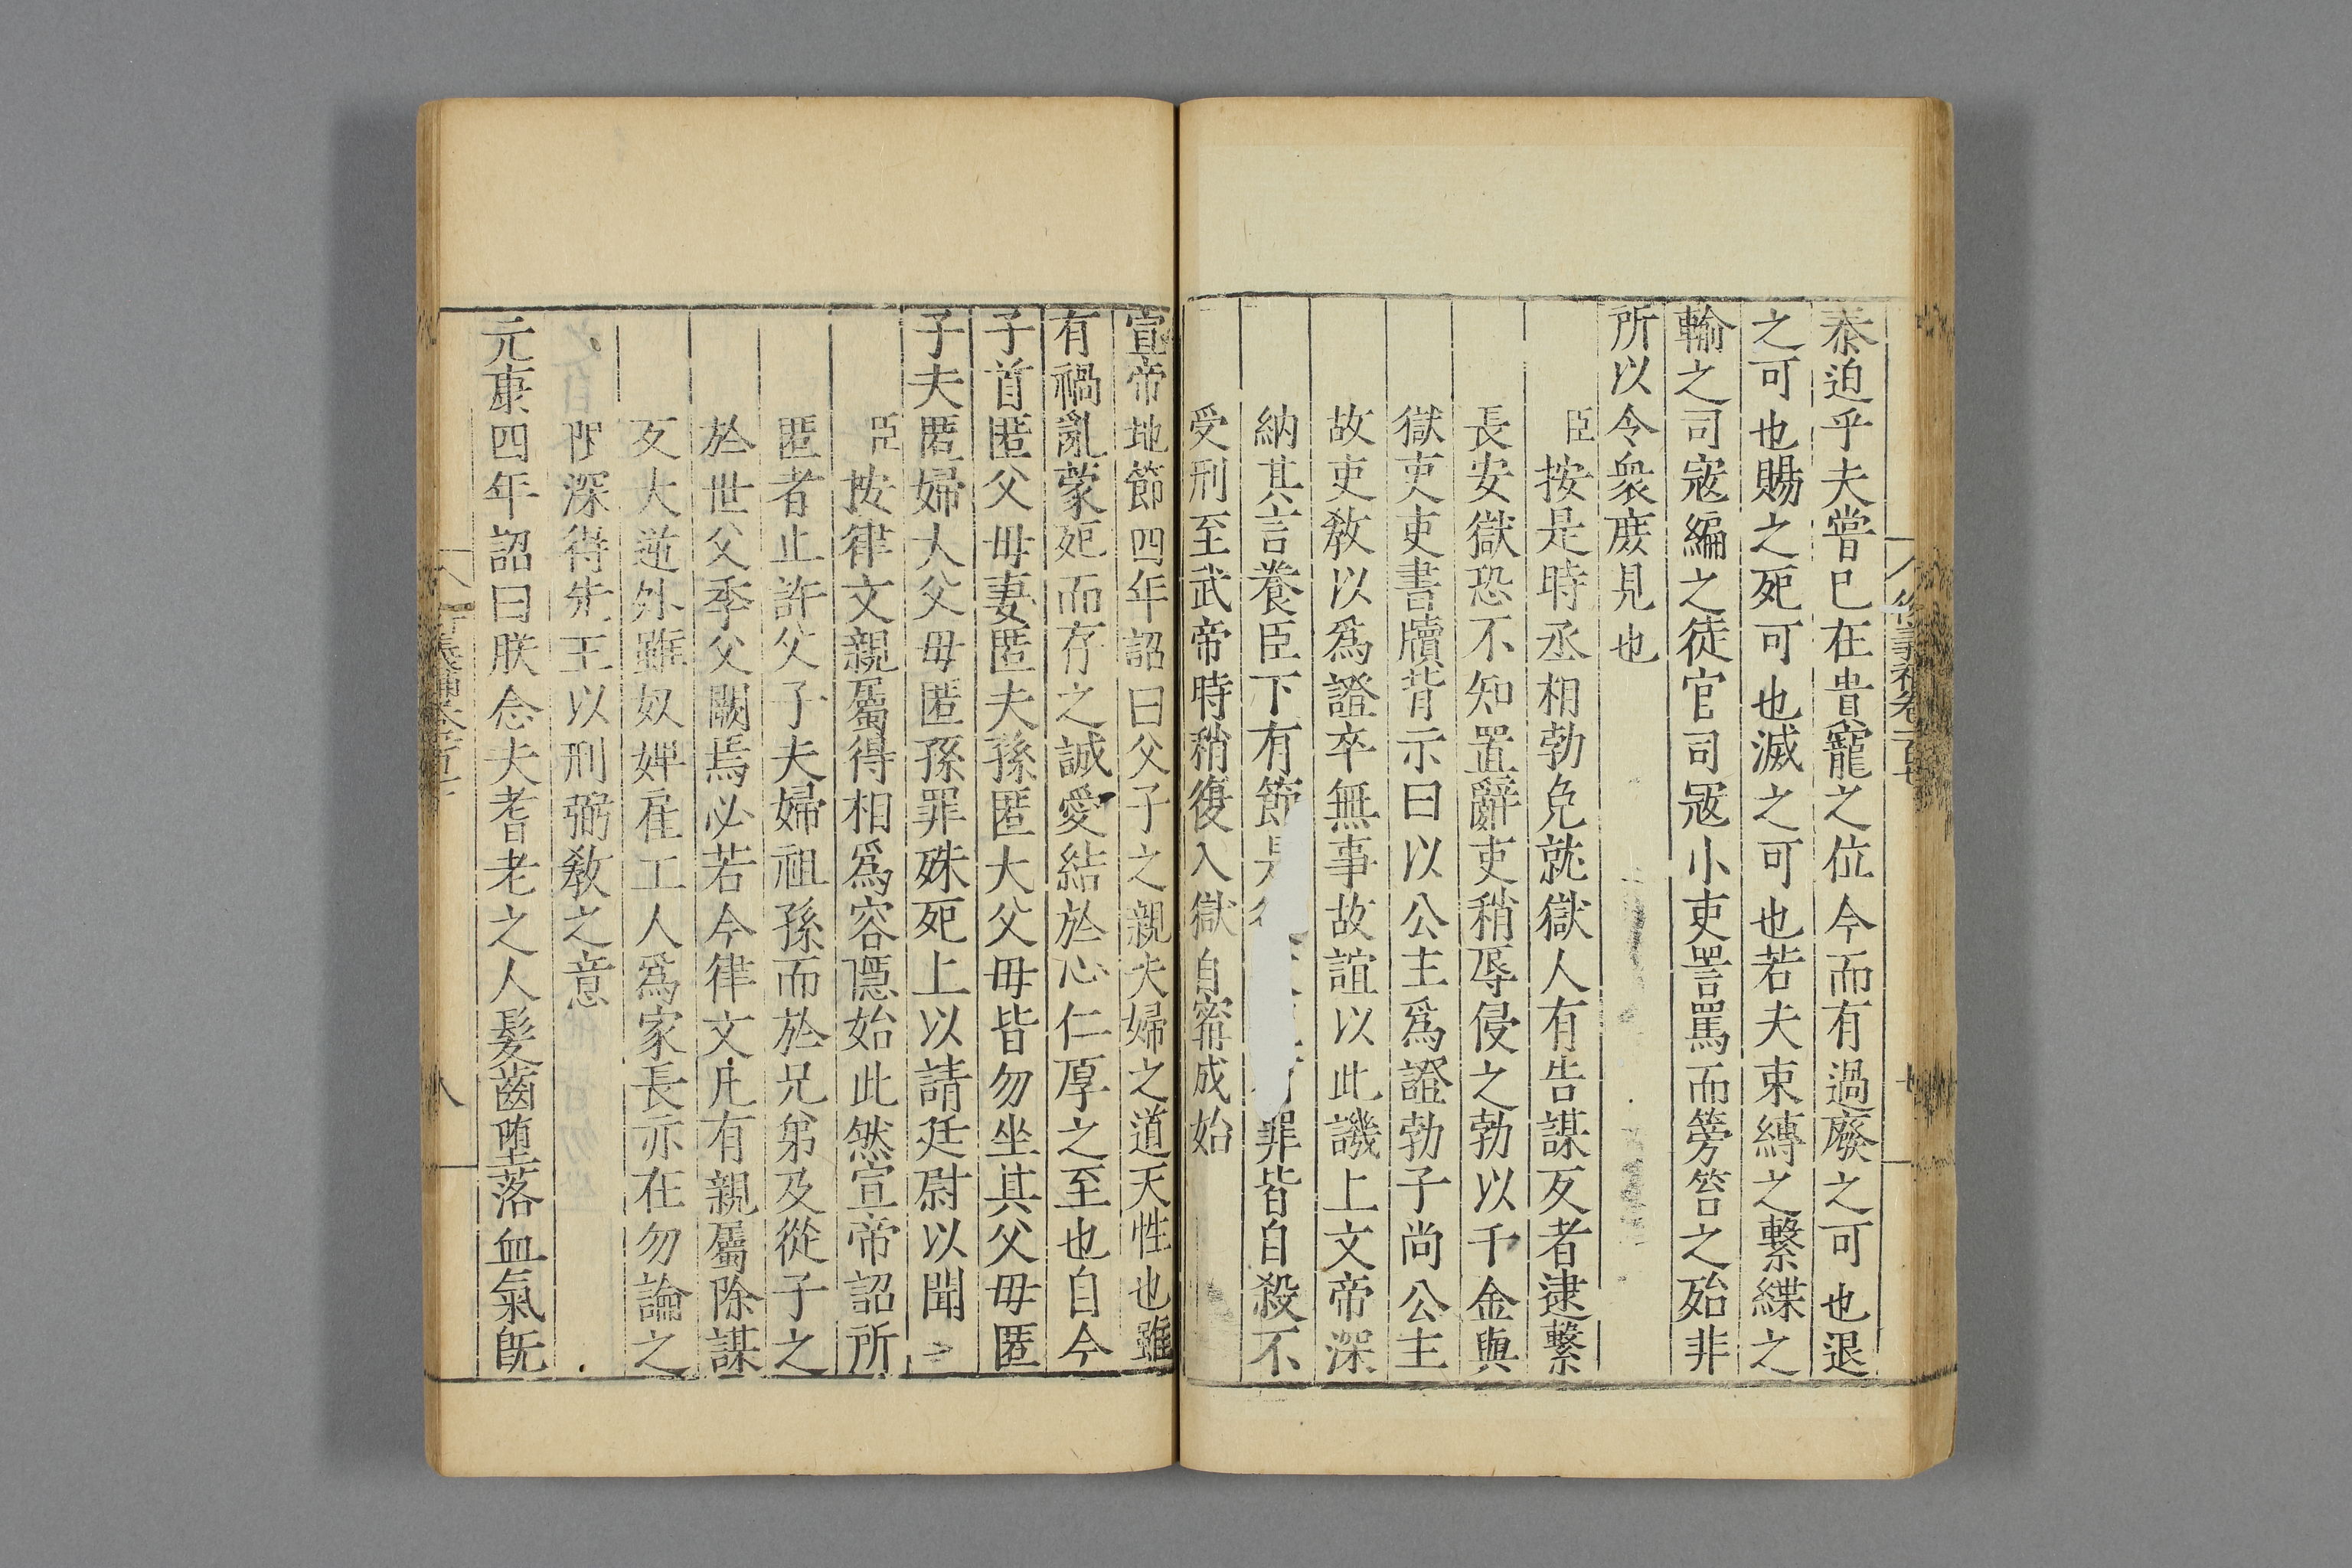 泰迫乎夫嘗已在貴寵之位今而有過廢之可也退
之可也賜之死可也滅之可也若夫束縛之繫緤之
輸之司寇編之徒官司寇小吏詈罵而篣笞之殆非
所以令衆庶見也
臣按是時丞相勃免就獄人有告謀反者逮繫
長安獄恐不知置辭吏稍辱侵之勃以千金與
獄吏吏書牘背示曰以公主爲證勃子尚公主
故吏敎以爲證卒無事故誼以此譏上文帝深
納其言養臣下有節罪皆自殺不
受刑至武帝時稍復入獄自甯成始
宣帝地節四年詔曰父子之親夫婦之道天性也雖
有禍亂蒙死而存之誠愛結於心仁厚之至也自今
子首匿父母妻匿夫孫匿大父母皆勿坐其父母匿
子夫匿婦大父母匿孫罪殊死上以請廷尉以聞
臣按律文親屬得相爲容隱始此然宣帝詔所
匿者止許父子夫婦祖孫而於兄弟及從子之
於世父季父闕焉必若今律文凡有親屬除謀
反大逆外雖奴婢雇工人爲家長亦在勿論之
限深得先王以刑弼敎之意
元康四年詔曰朕念夫耆老之人髮齒堕落血氣旣